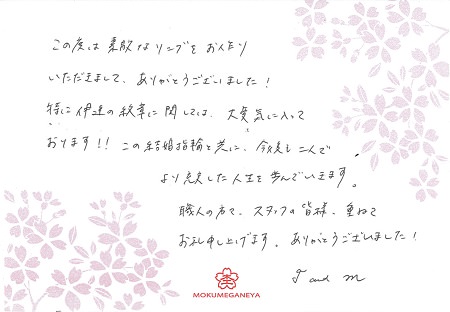 この度は素敵なリングをお人たり
いただきまして、ありがとうございました!
特に伊達の紋章に関しては、大変気に入って
おります!! この結婚指輪と共に、今後も二人で
より充実した人生を歩んでいきます。
職人の方々、スタッフの皆様、重ねて
お礼申し上げます。ありがとうございました!
T and M
MOKUMEGANEYA